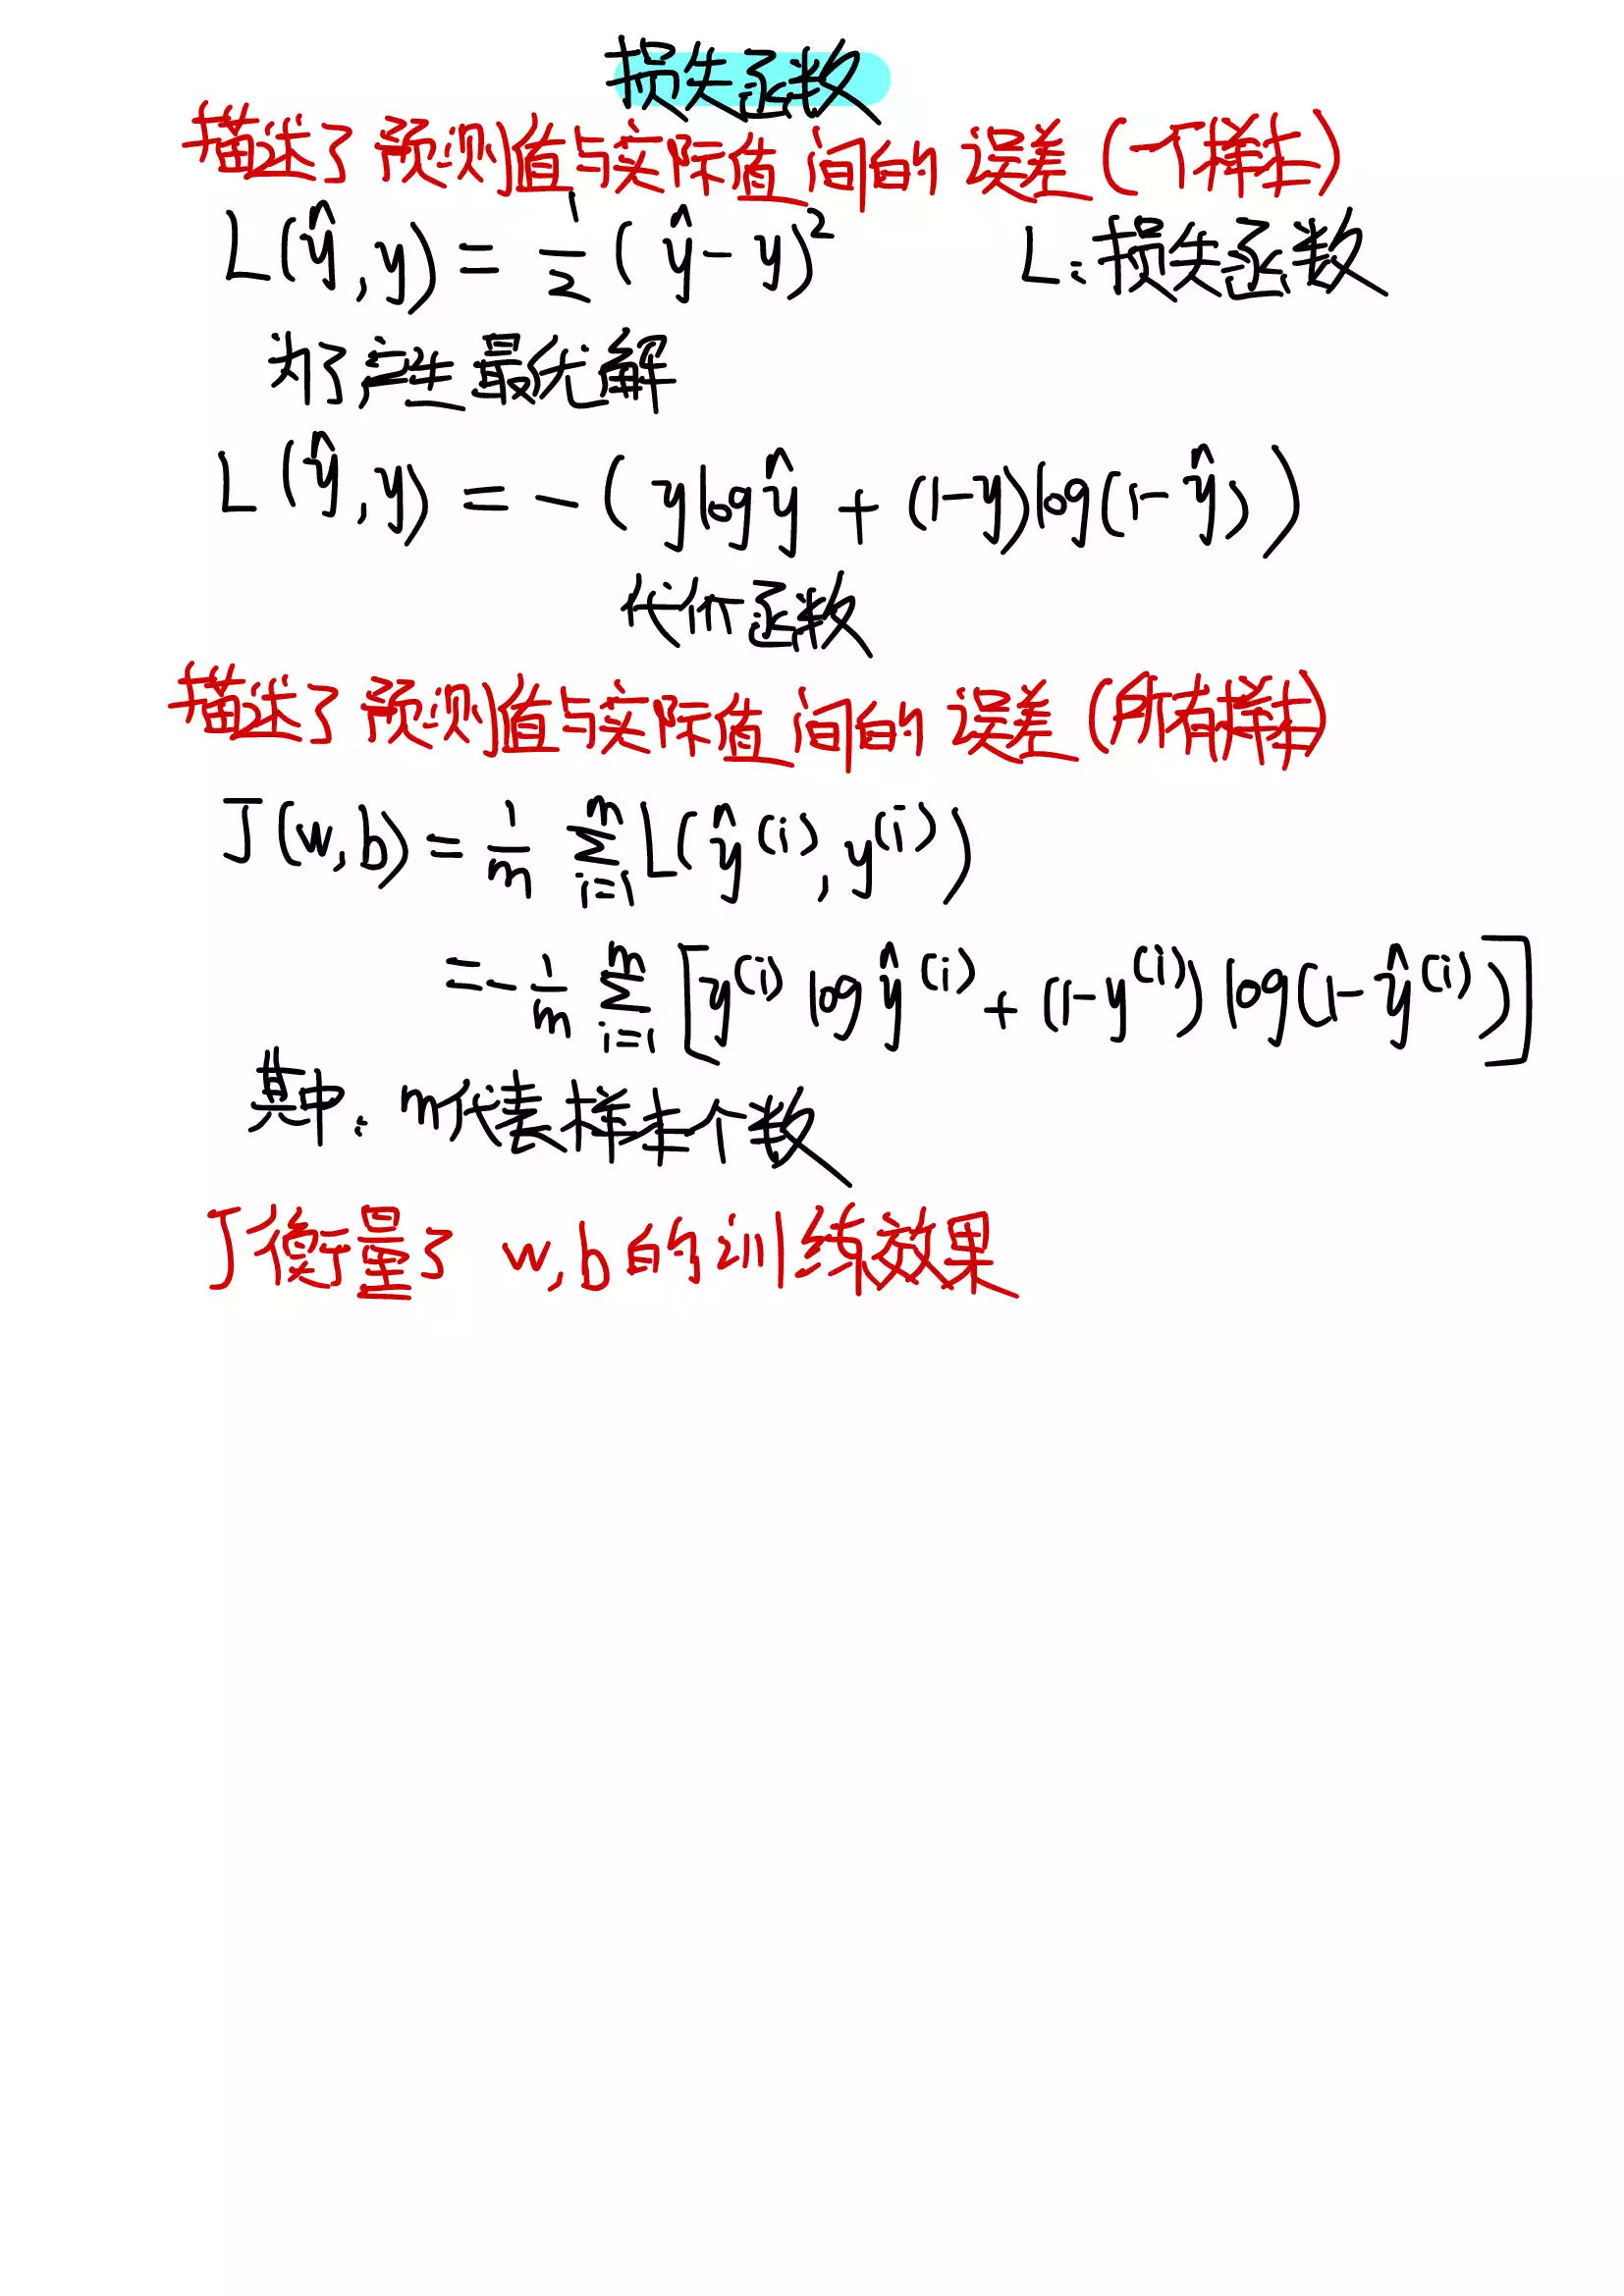 损失函数
描述了预测值与实际值间的误差(一个样本)
L(ŷ,y) = 1/2 (ŷ-y)² L:损失函数
为了产生最优解
L(ŷ,y) = -(ylogŷ + (1-y)log(1-ŷ))
代价函数
描述了预测值与实际值间的误差(所有样本)
J(w,b) = 1/m ∑_{i=1}^{m} L(ŷ^(i), y^(i))
= -1/m ∑_{i=1}^{m} [y^(i) log ŷ^(i) + (1-y^(i)) log(1-ŷ^(i))]
其中:m代表样本个数
J衡量了 w,b的训练效果